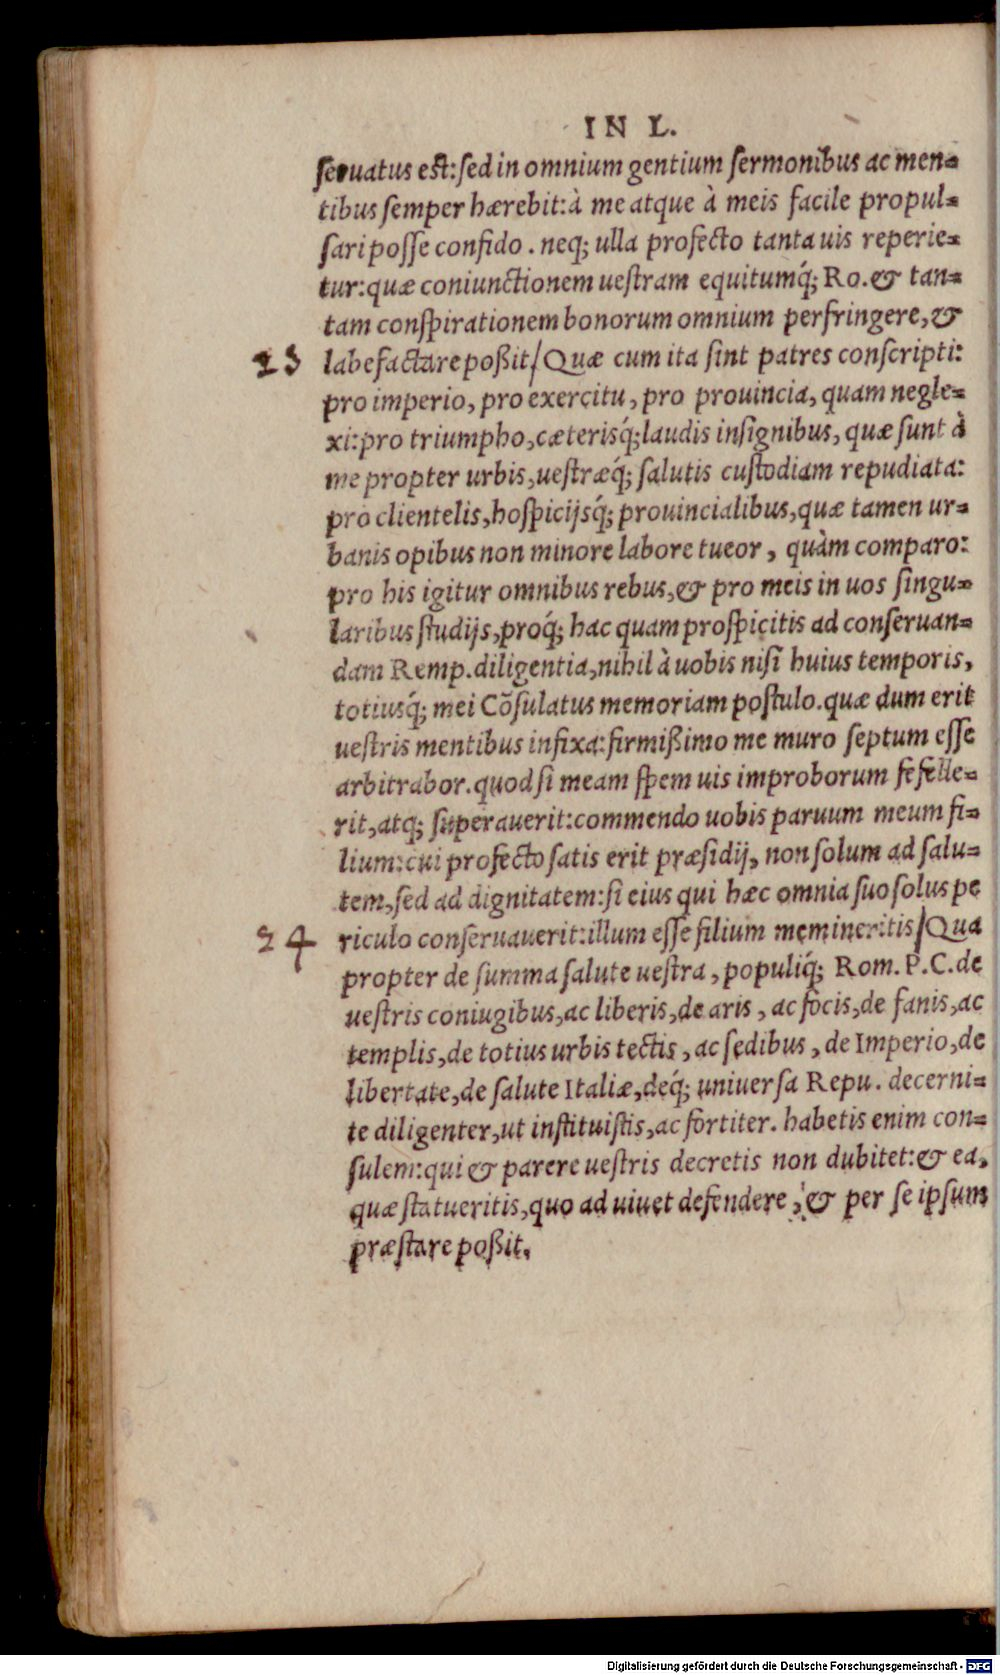 IN L.
seruatus est: sed in omnium gentium sermonibus ac men=
tibus semper hærebit: à me atque à meis facile propul=
sari posse confido. neq; ulla profecto tanta uis reperie=
tur: quæ coniunctionem uestram equitumq́; Ro. & tan=
tam conspirationem bonorum omnium perfringere, &
23 labefactare poßit/ Quæ cum ita sint patres conscripti:
pro imperio, pro exercitu, pro prouincia, quam negle=
xi: pro triumpho, cæterisq́; laudis insignibus, quæ sunt à
me propter urbis, uestræq́; salutis custodiam repudiata:
pro clientelis, hospicijsq́; prouincialibus, quæ tamen ur=
banis opibus non minore labore tueor, quàm comparo:
pro his igitur omnibus rebus, & pro meis in uos singu=
laribus studijs, proq́; hac quam prospicitis ad conseruan=
dam Remp. diligentia, nihil à uobis nisi huius temporis,
totiusq́; mei Cõsulatus memoriam postulo. quæ dum erit
uestris mentibus infixa: firmißimo me muro septum esse
arbitrabor. quod si meam spem uis improborum fefelle=
rit, atq; superauerit: commendo uobis paruum meum fi=
lium: cui profecto satis erit præsidij, non solum ad salu=
tem, sed ad dignitatem: si eius qui hæc omnia suo solus pe
24 riculo conseruauerit: illum esse filium memineritis/ Qua
propter de summa salute uestra, populiq́; Rom. P. C. de
uestris coniugibus, ac liberis, de aris, ac focis, de fanis, ac
templis, de totius urbis tectis, ac sedibus, de Imperio, de
libertate, de salute Italiæ, deq́; uniuersa Repu. decerni=
te diligenter, ut instituistis, ac fortiter. habetis enim con=
sulem: qui & parere uestris decretis non dubitet: & ea,
quæ statueritis, quo ad uiuet defendere, & per se ipsum
præstare poßit,
Digitalisierung gefördert durch die Deutsche Forschungsgemeinschaft - DFG